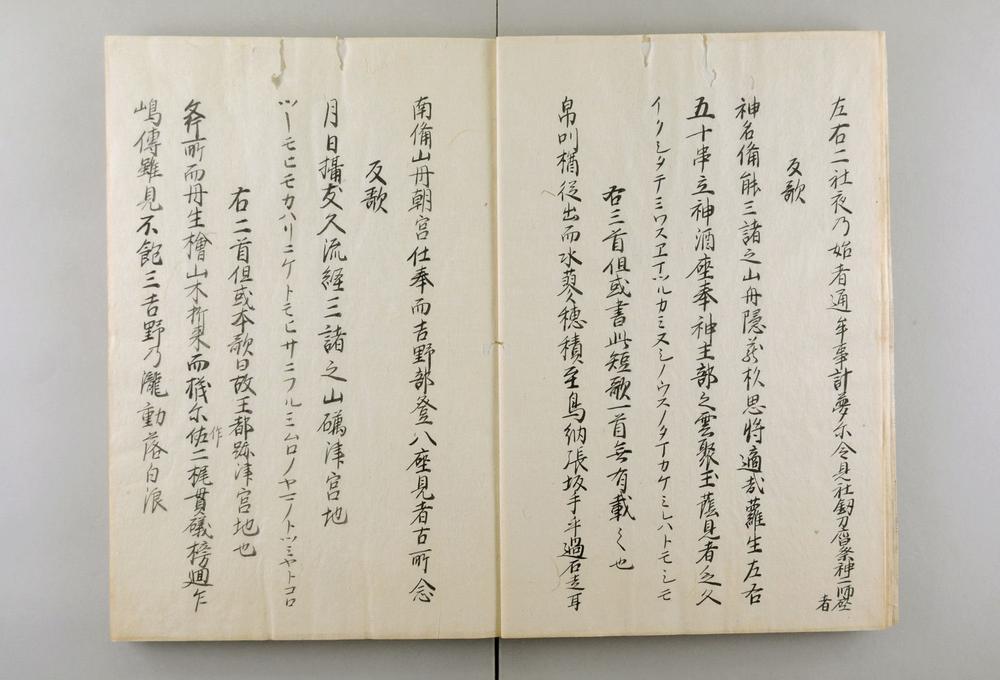 左右二社夜乃始者通牟事計夢尓令見社釼刀齋祭神二師座
者
反歌
神名備能三諸之山丹隠蔵杉思将過哉蘿生左右
五十串立神酒座奉神主部之雲聚玉蔭見者乏久
イクシタテミワスヱマツルカミヌシノウスノタマカケミレハトモシモ
右三首但或書此短歌一首無有載之也
帛叫楢従出而水蓼穂積至鳥納張坂手乎過石走耳
南備山丹朝宮仕奉而吉野部登入座見者古所念
反歌
月日攝友久流經三諸之山礪津宮地
ツキモヒモカハリユケトモヒサニフルミムロノヤマノトツミヤトコロ
右二首但或本歌曰故王都跡津宮地也
斧取而丹生檜山木折来而機尓佐二梶貫礒榜廻乍
作
嶋傳雖見不飽三吉野乃瀧動落白浪